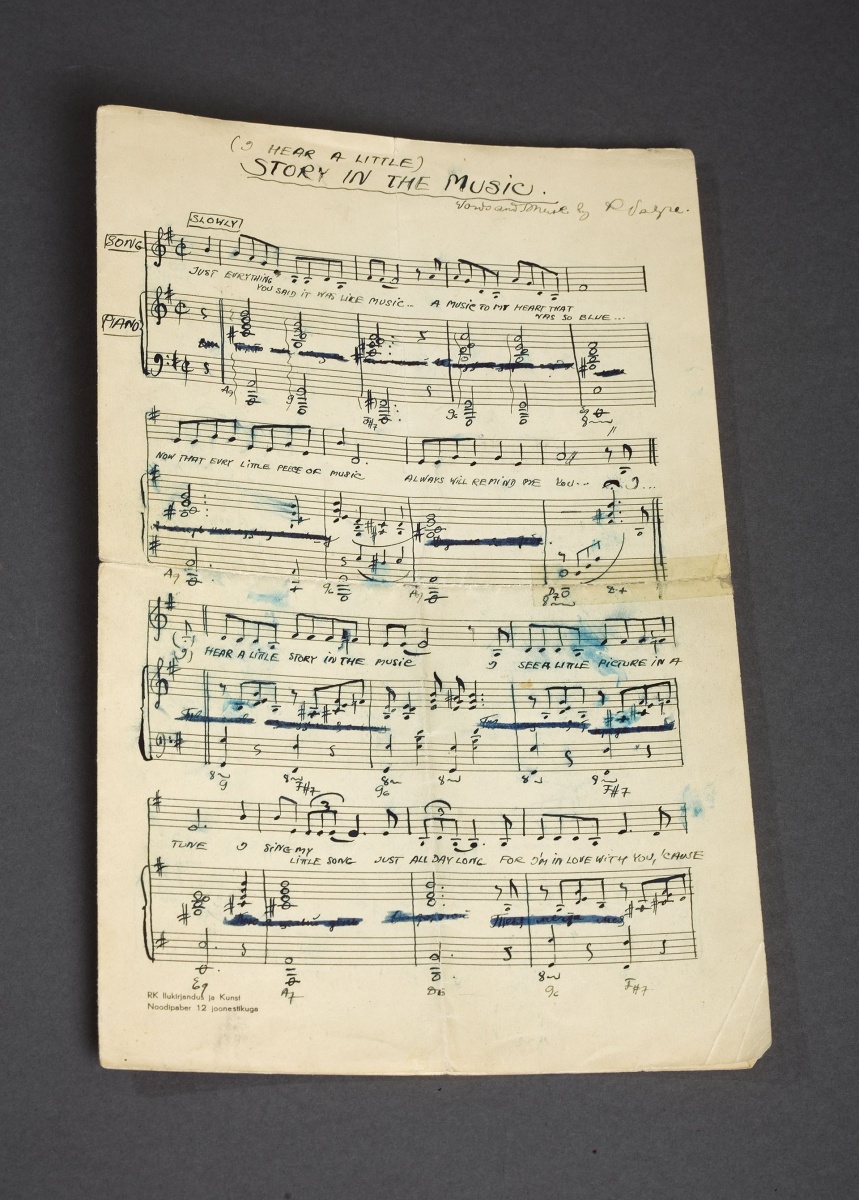 (I HEAR A LITTLE)
STORY IN THE MUSIC.
Words and Music by R Valgre.
SLOWLY
SONG
JUST EVRYTHING
YOU SAID IT WAS LIKE MUSIC... A MUSIC TO MY HEART THAT
WAS SO BLUE...
PIANO
A9 G F#7 G6 E9
NOW THAT EVRY LITTLE PEECE OF MUSIC ALWAYS WILL REMIND ME YOU... I...
A9 G6 A7 D7 D+
(I) HEAR A LITLE STORY IN THE MUSIC I SEE A LITTLE PICTURE IN A
G F#7 G6 F#7
TUNE I SING MY
LITTLE SONG JUST ALL DAY LONG FOR I'M IN LOVE WITH YOU, 'CAUSE
E9 A7 G6 F#7
RK Ilukirjandus ja Kunst
Noodipaber 12 joonestikuga